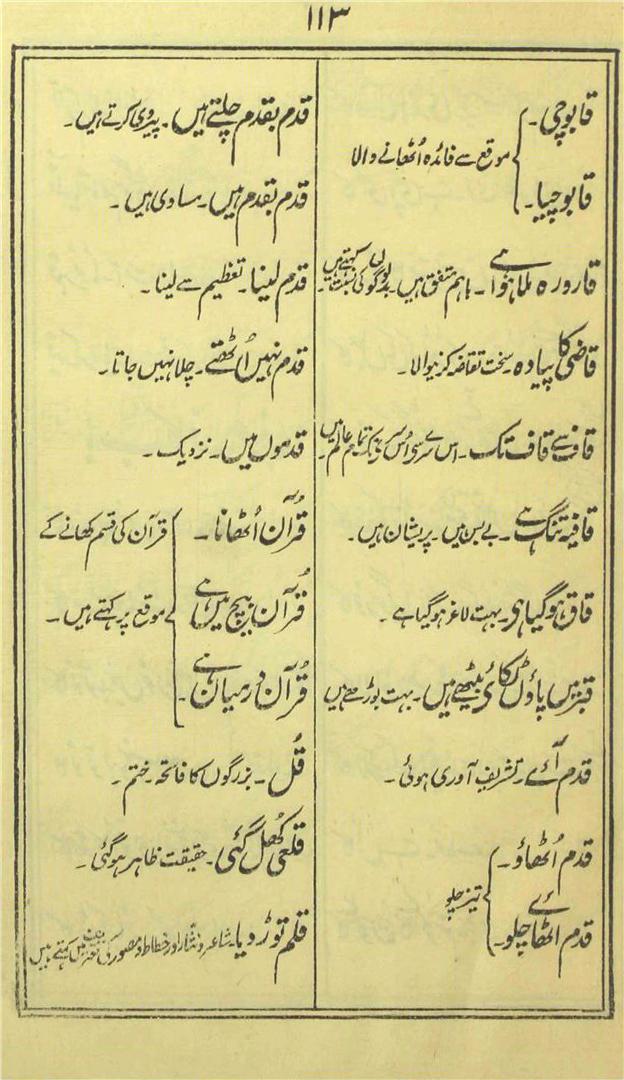 ۱۱۳
قابوچی۔
قابوچیا۔
موقع سے فائدہ اُٹھانے والا
قارورہ ملا ہوا ہے۔ باہم متفق ہیں۔ بدلوگوں کی نسبت کہتے ہیں۔
قاضی کا پیادہ۔ سخت تقاضہ کرنیوالا۔
قاف سے قاف تک۔ اس سرے سے اُس سرے تک۔ تمام عالم میں۔
قافیہ تنگ ہے۔ بے بس ہیں۔ پریشان ہیں۔
قاق ہوگیا ہی۔ بہت لاغر ہوگیا ہے۔
قبر میں پاؤں لٹکائے بیٹھے ہیں۔ بہت بوڑھے ہیں
قدم آئے۔ تشریف آوری ہوئی۔
قدم اُٹھاؤ۔
قدم اٹھائے چلو۔
تیز چلو
قدم بقدم چلتے ہیں۔ پیروی کرتے ہیں۔
قدم بقدم ہیں۔ مساوی ہیں۔
قدم لینا۔ تعظیم سے لینا۔
قدم نہیں اُٹھتے۔ چلا نہیں جاتا۔
قدموں میں۔ نزدیک۔
قُرآن اُٹھانا۔
قُرآن بیچ میں ہے
قُرآن درمیان ہے۔
قرآن کی قسم کھانے کے
موقع پر کہتے ہیں۔
قُل۔ بزرگوں کا فاتحہ۔ ختم۔
قلعی کُھل گئی۔ حقیقت ظاہر ہوگئی۔
قلم توڑ دیا۔ شاعر و نثار اور خطاط و مصور کی تعریف میں کہتے ہیں